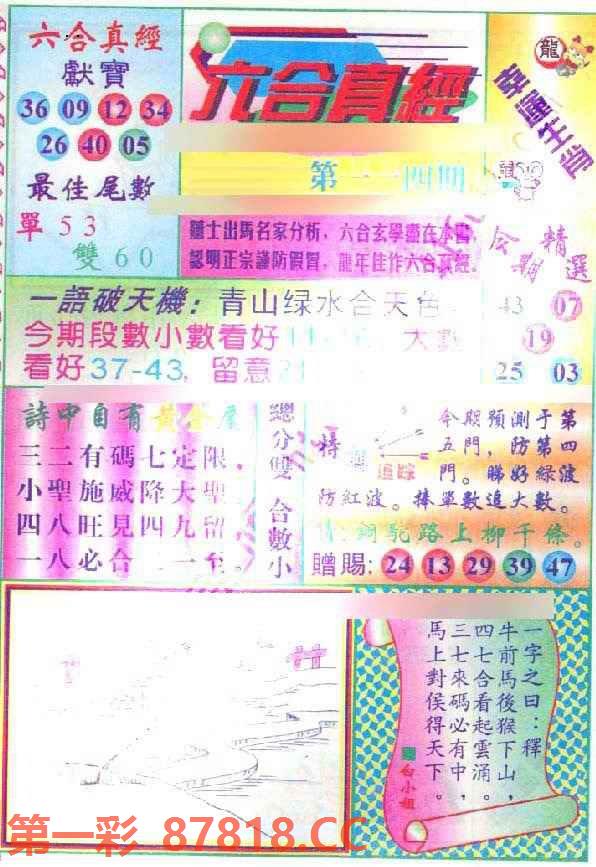 六合真經
獻寶
36 09 12 34
26 40 05
最佳尾數
單 5 3
雙 6 0
六合真經
第一一四期
龍
幸運生肖
鼠
隱士出馬名家分析，六合玄學盡在本書
認明正宗謹防假冒，龍年佳作六合真經.
精選
43 07
19
25 03
一語破天機：青山绿水合天色
今期段數小數看好
大數
看好37-43, 留意
詩中自有黄金屋
三二有碼七定限。
小聖施威降大聖
四八旺見四九留
一八必合二一至。
總分雙 合數小
特
追踪
今期預測于第
五門，防第四
門。睇好綠波
防紅波。捧單數追大數。
銅駝路上柳千條。
贈賜: 24 13 29 39 47
一字之曰：釋
牛前馬後猴下山，
四七合看起雲涌。
三七來碼必有中，
馬上對侯得天下。
白小姐
第一彩 87818.CC